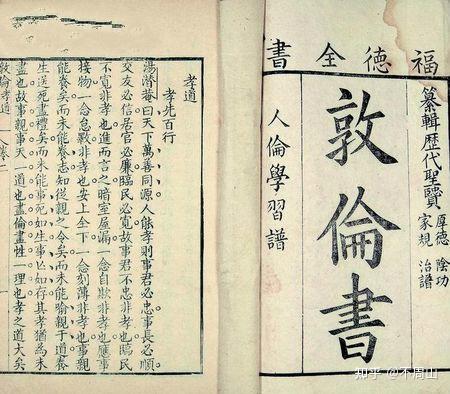 福德全書
纂輯歴代聖賢
厚德 陰功
家規 治譜
敦倫書
人倫學習譜
孝道
孝先百行
湯潛菴曰天下萬善同源人能孝則事君必忠事長必順
交友必信居官必廉臨民必寬故事君不忠非孝也臨民
不寬非孝也進而言之暗室屋漏一念自欺非孝也應事
接物一念怠斁非孝也安上全下一念刻薄非孝也事親
能養矣而未能養志知從親之令矣而未能喻親于道養
生送死盡禮矣而未能事死如生事亡如存其孝猶為未
盡也故事親事天一道也盡倫盡性一理也孝之道大矣
敦倫孝道
知乎 @不周山